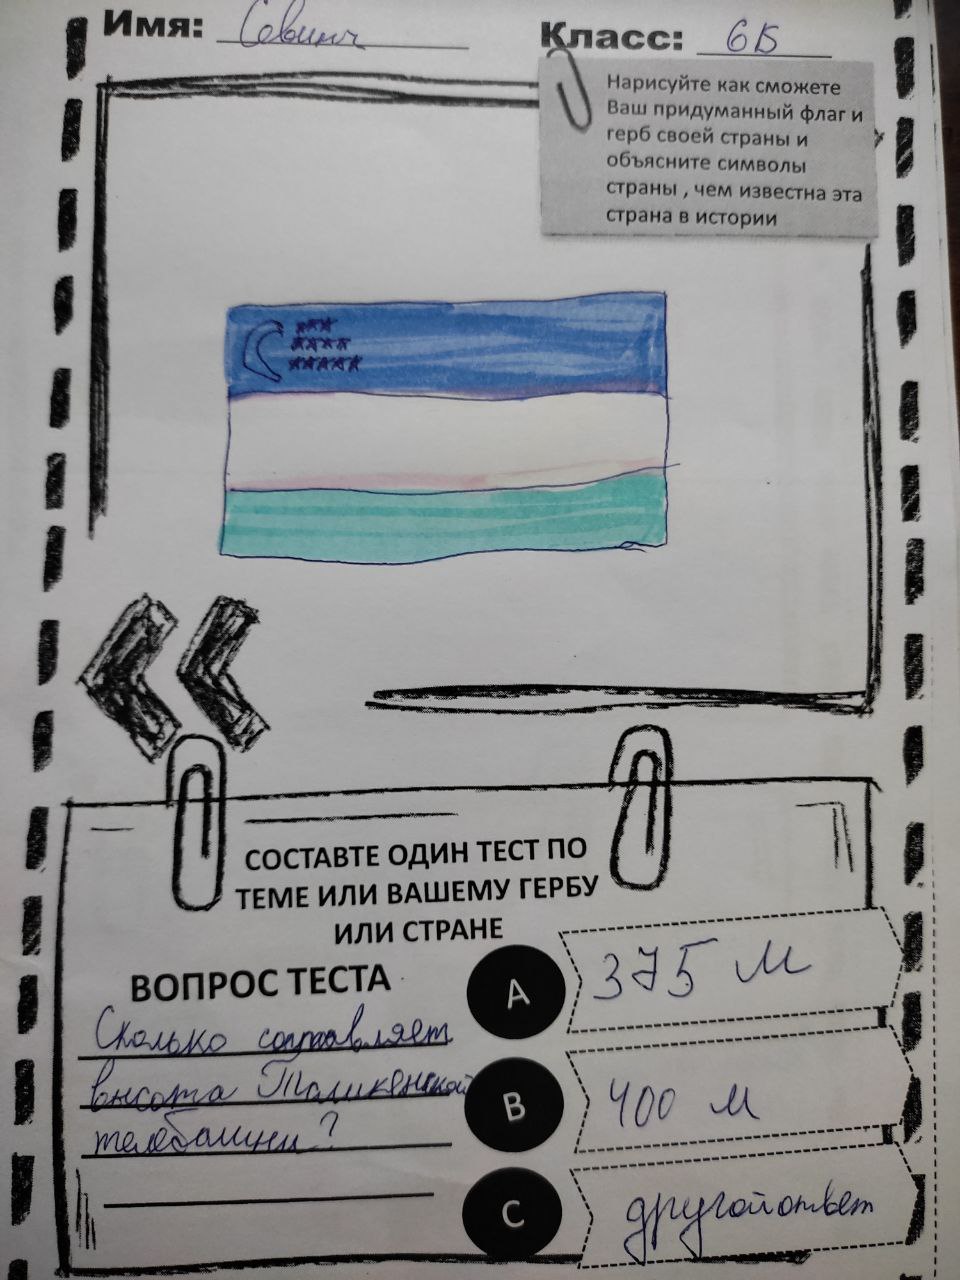 Имя: Севинч
Класс: 6Б
Нарисуйте как сможете
Ваш придуманный флаг и
герб своей страны и
объясните символы
страны , чем известна эта
страна в истории
СОСТАВТЕ ОДИН ТЕСТ ПО
ТЕМЕ ИЛИ ВАШЕМУ ГЕРБУ
ИЛИ СТРАНЕ
ВОПРОС ТЕСТА
Сколько составляет
высота Ташкентской
телебашни?
A 375 м
B 400 м
C другой ответ